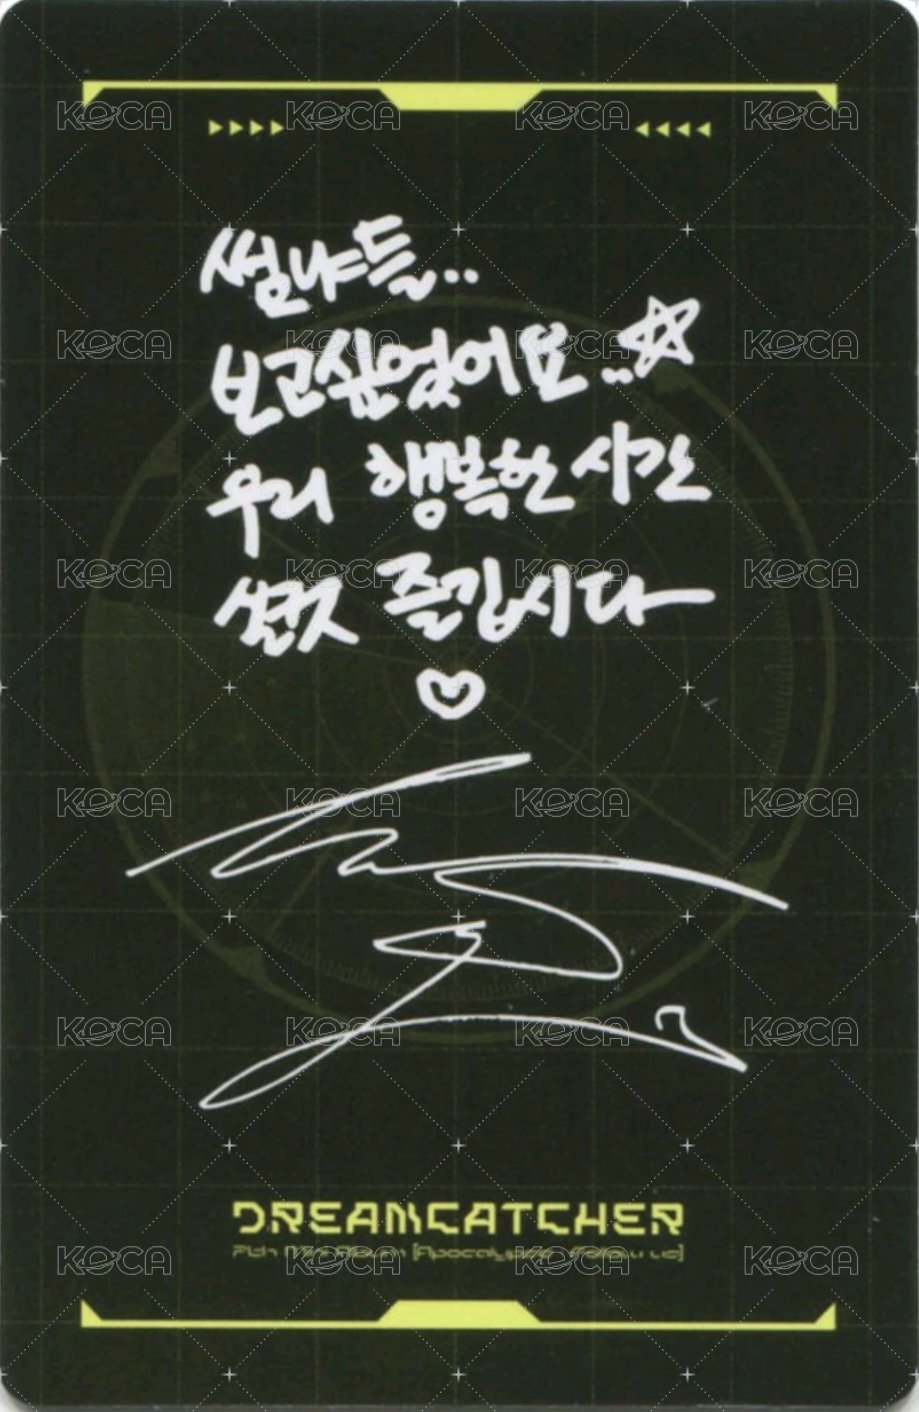 썸냐들..
보고싶었어요..☆
우리 행복한 시간
실컷 즐깁시다
♡
DREAMCATCHER
7th Mini Album [Apocalypse : Follow us]
KOCA